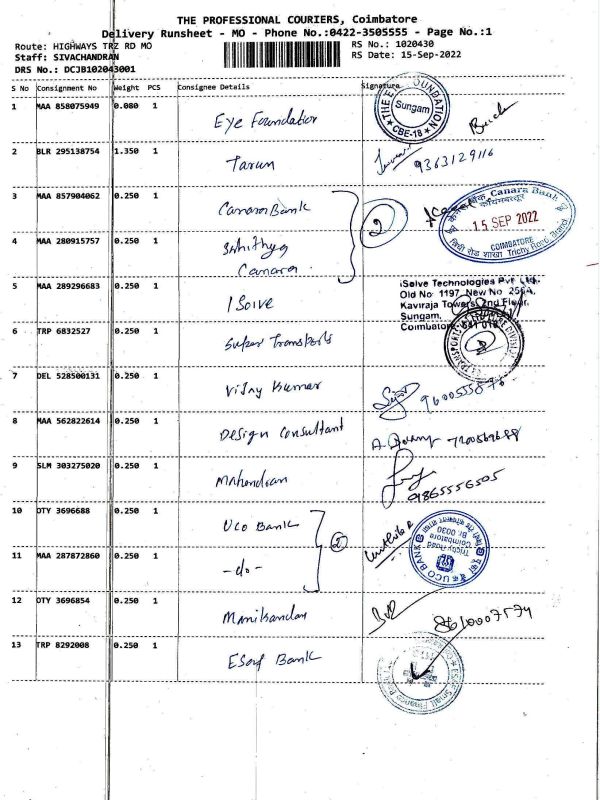 THE PROFESSIONAL COURIERS, Coimbatore
Delivery Runsheet - MO - Phone No.:0422-3505555 - Page No.:1
Route: HIGHWAYS TRZ RD MO
RS No.: 1020430
Staff: SIVACHANDRAN
RS Date: 15-Sep-2022
DRS No.: DCJB102043001
S No Consignment No Weight PCS Consignee Details Signature
1 MAA 858075949 0.080 1 Eye Foundation
THE EYE FOUNDATION
Sungam
CBE-18
2 BLR 295138754 1.350 1 Tarun 9363129116
3 MAA 857904062 0.250 1 Canara Bank
2
केनरा बैंक Canara Bank
कोयम्बत्तूर
15 SEP 2022
COIMBATORE
त्रिची रोड शाखा Trichy Road Branch
4 MAA 280915757 0.250 1
Canara
5 MAA 289296683 0.250 1 I Solve
iSolve Technologies Pvt Ltd.
Old No 1197, New No 256A,
Kaviraja Towers, 2nd Floor,
Sungam,
Coimbatore - 641 018
6 TRP 6832527 0.250 1 Super Transports
7 DEL 528500131 0.250 1 Vijay Kumar
8 MAA 562822614 0.250 1 Design Consultant
9 SLM 303275020 0.250 1 Mahendran 9865556505
10 OTY 3696688 0.250 1 UCO Bank
2
UCO BANK
Trichy Road
Coimbatore
Br. 0030
11 MAA 287872860 0.250 1 -do-
12 OTY 3696854 0.250 1 Manikandan 8610007574
13 TRP 8292008 0.250 1 ESAF Bank
ESAF Small Finance Bank